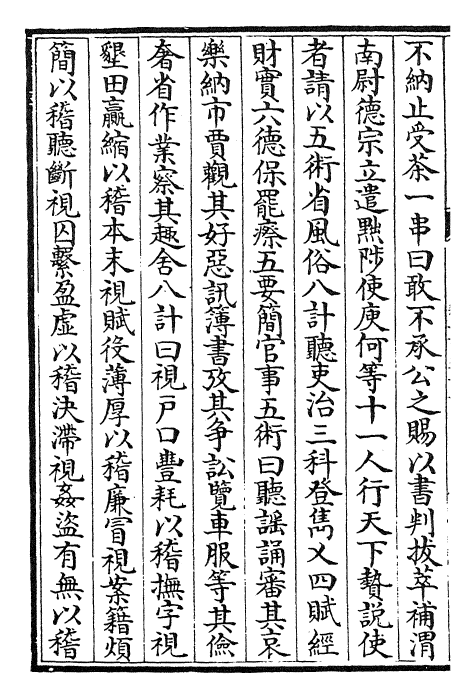 不納止受茶一串曰敢不承公之賜以書判拔萃補渭
南尉德宗立遣黜陟使庾何等十一人行天下贄説使
者請以五術省風俗八計聽吏治三科登雋乂四賦經
財實六德保罷瘵五要簡官事五術曰聽謡誦審其哀
樂納市賈觀其好惡訊簿書攷其爭訟覽車服等其儉
奢省作業察其趣舍八計曰視戸口豐耗以稽撫字視
墾田贏縮以稽本末視賦役薄厚以稽廉冒視案籍煩
簡以稽聽斷視囚繫盈虚以稽決滯視姦盜有無以稽